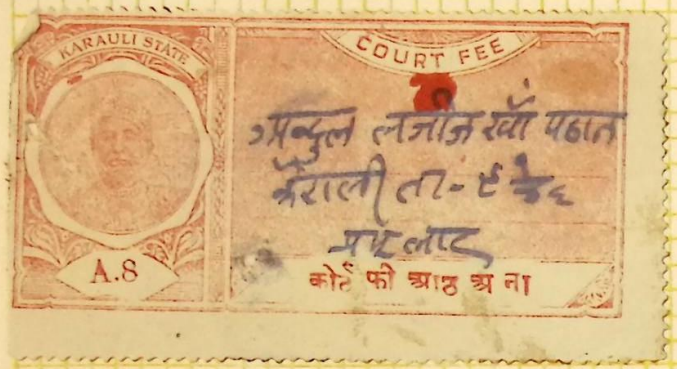 KARAULI STATE
COURT FEE
अब्दुल लजीज खाँ पठान
करौली ता-
A.8
कोर्ट फी आठ अ ना